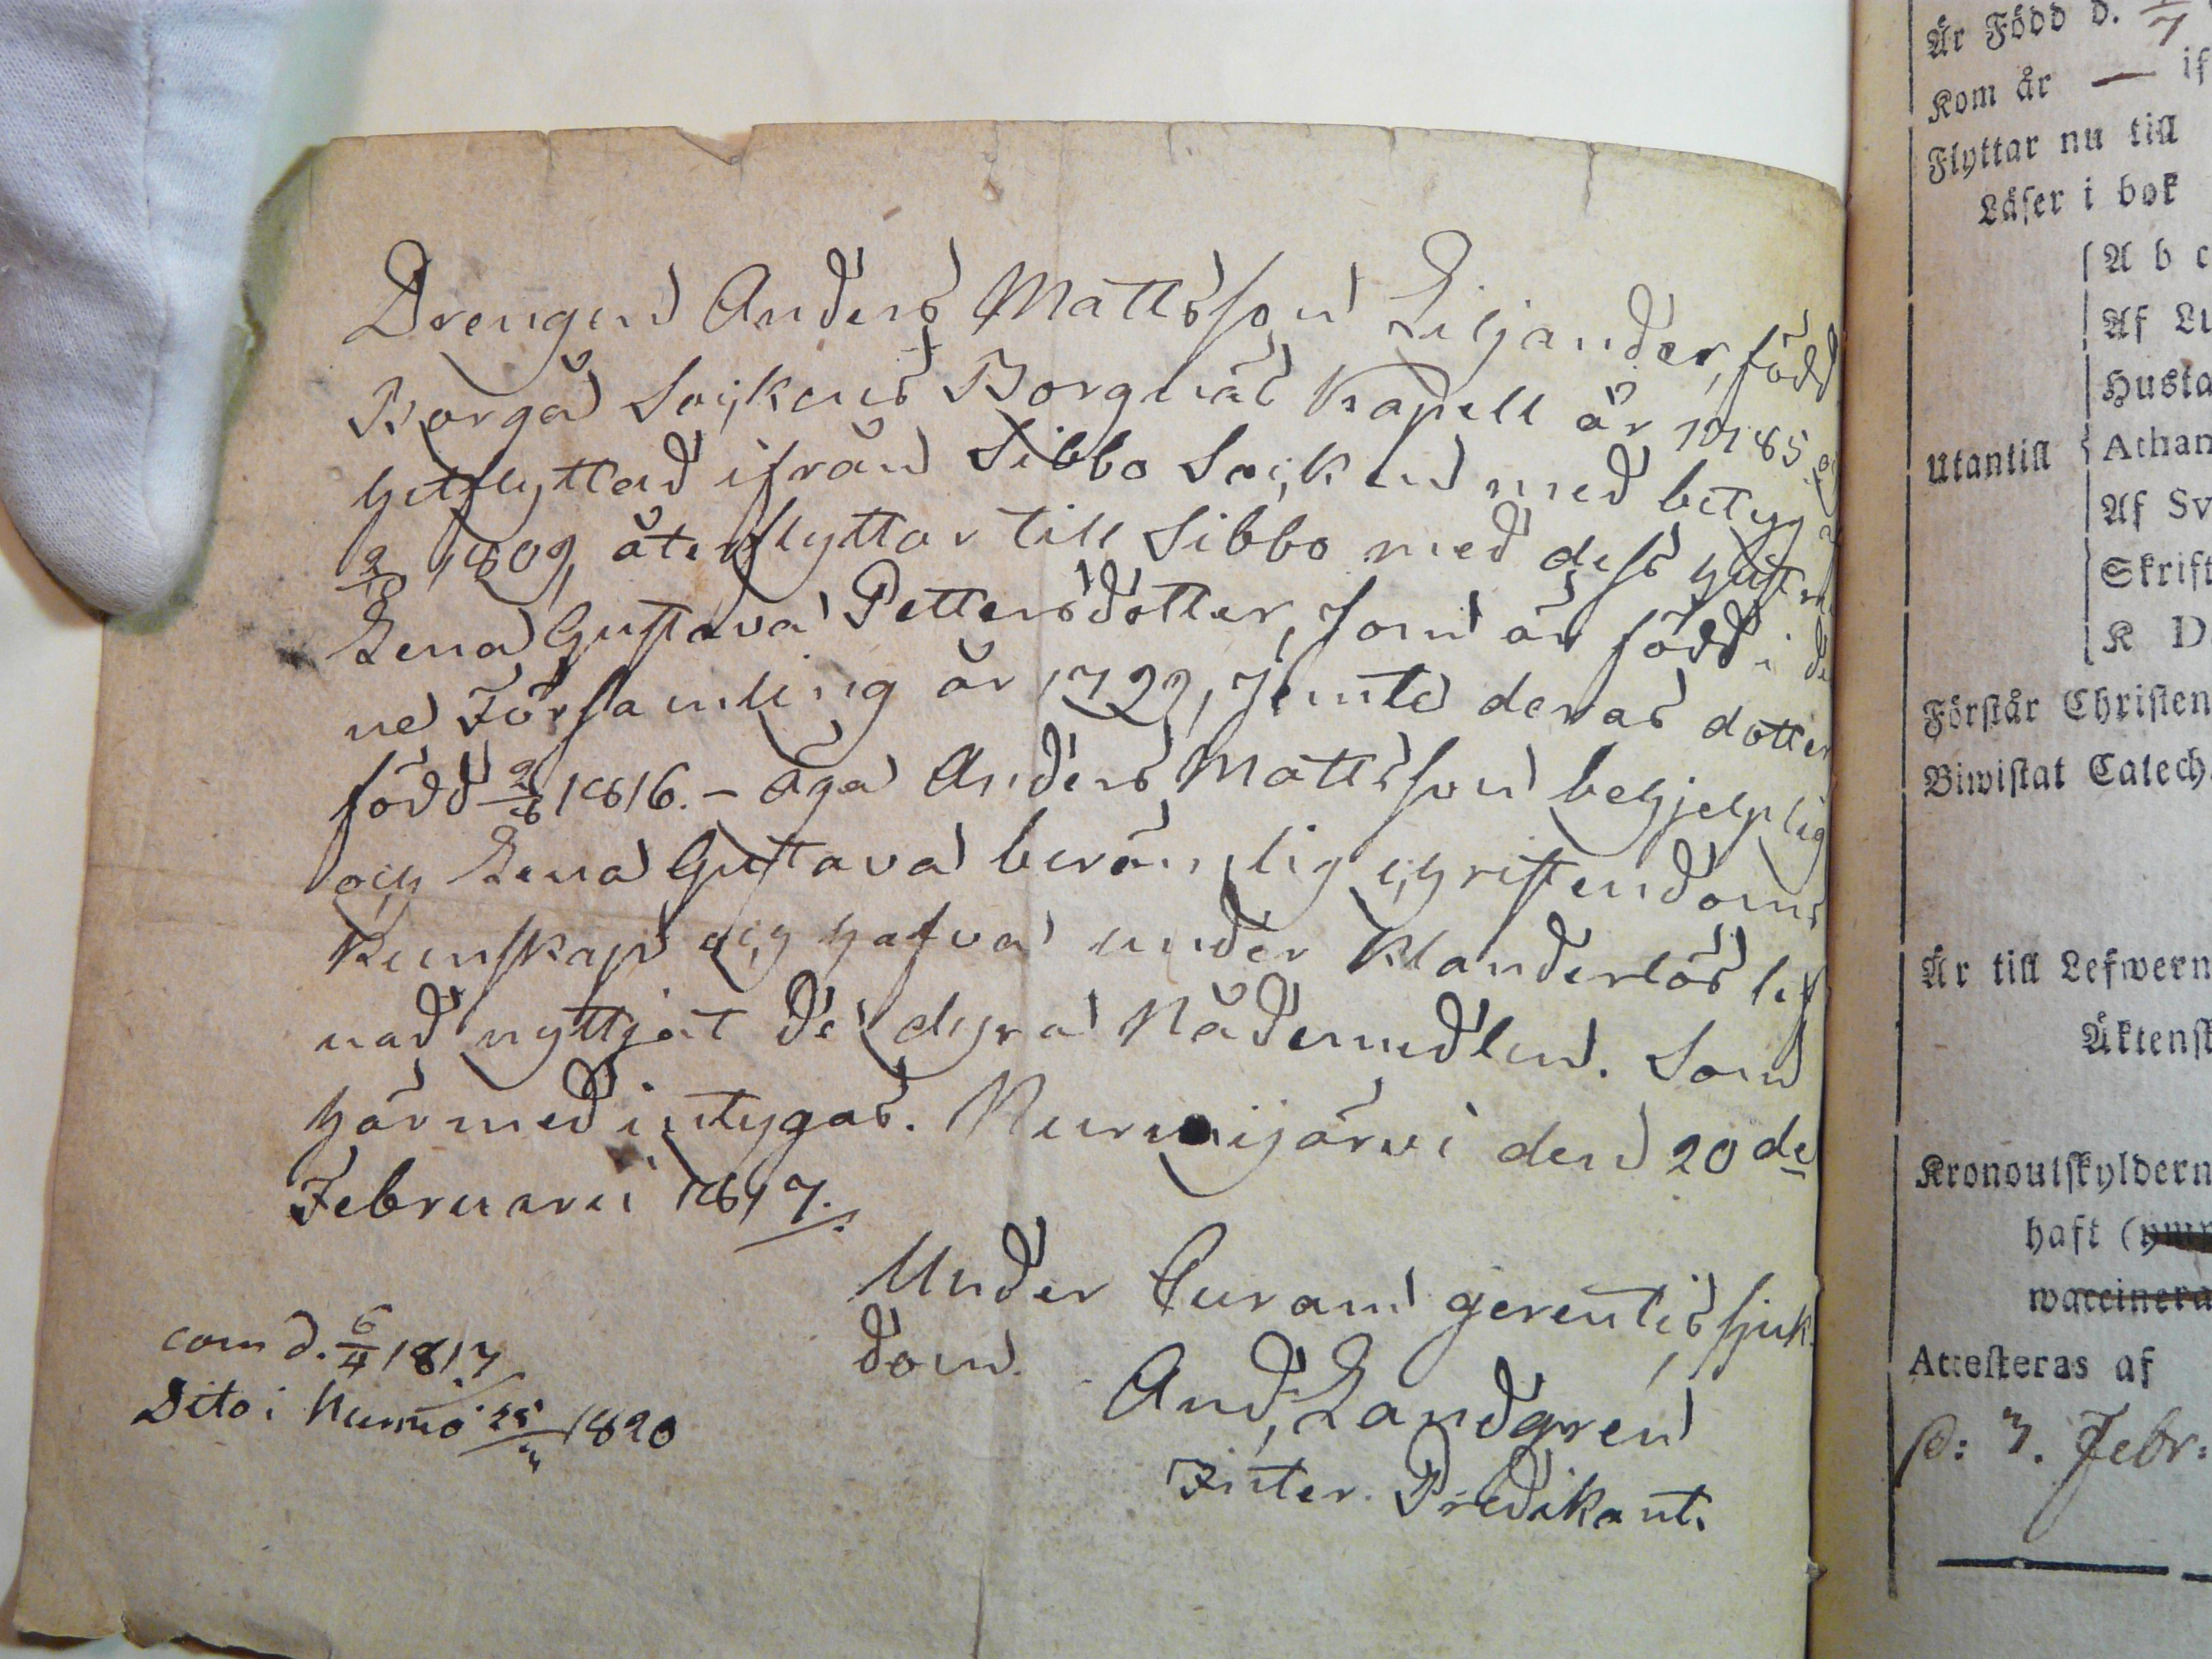 Drengen Anders Mattsson Liljander, född
Borgå Sockens Borgnäs Kapell år 1785
hitflyttad ifrån Sibbo Socken med betyg
1809, återflyttar till Sibbo med dess hustru
Lena Gustava Pettersdotter, som är född i de
ne Församling år 1792, jemte deras dotter
född 1816. – äga Anders Mattsson behjelplig
och Lena Gustava berömlig christendoms
kunskap och hafva under klanderlös lef
nad nyttjat de dyra Nådemedlen. Som
härmed intygas. Nurmijärvi den 20de
Februarii 1817.
Under Curam gerentis sjuk
dom.
And. Landgren
Inter. Predikant.
com d. 6/4 1817
Dito i 1820
Är Född d. 1/7
Kom år — if
Flyttar nu till
Läser i bok
A b c
Af Lu
Husta
Utantill
Athan
Af Sv
Skrift
K D
Förstår Christen
Biwistat Catech.
Är till Lefwern
Äktensk
Kronoutskyldern
haft (
waccinera
Attesteras af
d: 7. Febr: